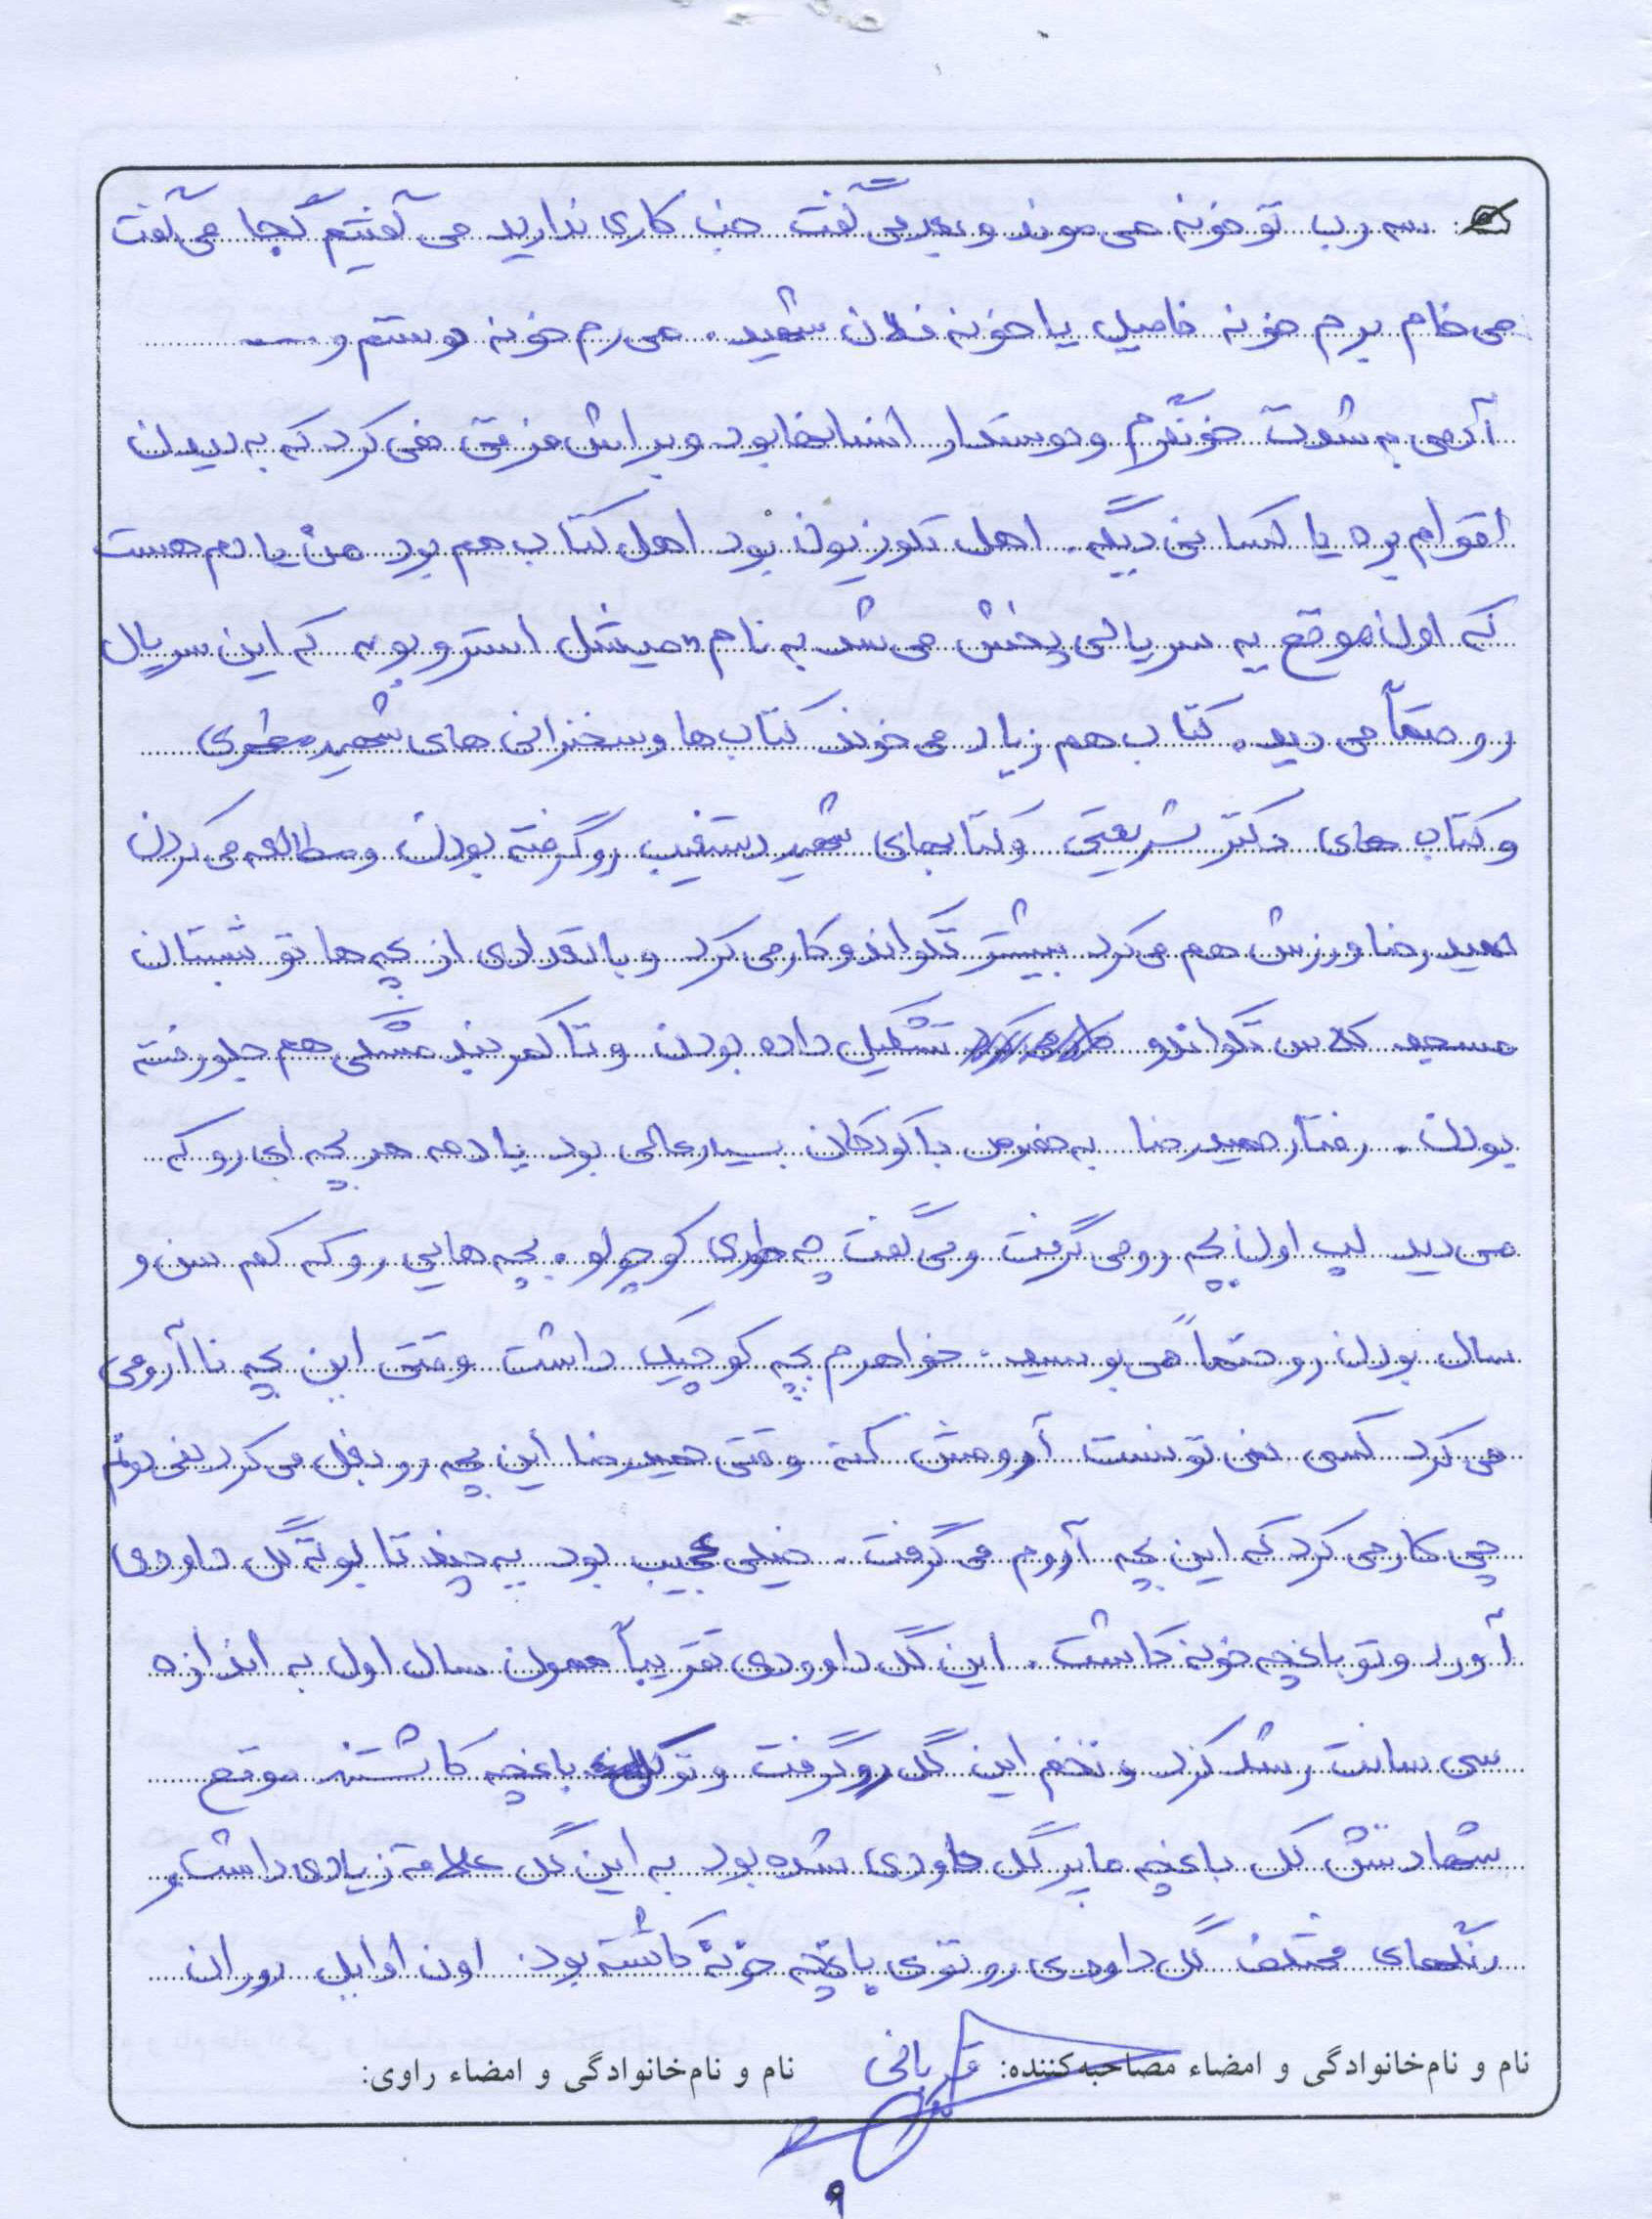 یه ربع تو خونه می موند و بعد می گفت خب کاری ندارید می گفتیم کجا می گفت
می خام برم خونه فامیل یا خونه فلان شهید. می رم خونه دوستم و ....
آدمی به شدت خونگرم و دوستدار انسانها بود و براش فرقی نمی کرد که به دیدن
اقوام بره یا کسانی دیگه. اهل تلوزیون بود اهل کتاب هم بود من یادم هست
که اون موقع یه سریالی پخش می شد به نام "میشل استروگوف" که این سریال
رو حتماً می دید. کتاب هم زیاد می خوند کتاب ها و سخنرانی های شهید مطهری
و کتاب های دکتر شریعتی و کتابهای شهید دستغیب رو گرفته بودن و مطالعه می کردن
حمیدرضا ورزش هم می کرد بیشتر تکواندو کار می کرد و با تعدادی از بچه ها تو شبستان
مسجد کلاس تکواندو تشکیل داده بودن و تا کمربند مشکی هم جلو رفته
بودن. رفتار حمیدرضا به خصوص با کودکان بسیار عالی بود یادمه هر بچه ای رو که
می دید لپ اون بچه رو می گرفت و می گفت چه طوری کوچولو. بچه هایی رو که کم سن و
سال بودن رو حتماً می بوسید. خواهرم بچه کوچیک داشت وقتی این بچه نا آرومی
می کرد کسی نمی تونست آرومش کنه وقتی حمیدرضا این بچه رو بغل می کرد نمی دونم
چی کار می کرد که این بچه آروم می گرفت. خیلی عجیب بود یه چند تا بوته گل داوودی
آورد و تو باغچه خونه کاشت. این گل داوودی تقریباً همون سال اول به اندازه
سی سانت رشد کرد و تخم این گل رو گرفت و تو کل باغچه کاشتند موقع
شهادتش کل باغچه ما پر گل داودی شده بود به این گل علاقه زیادی داشت و
رنگهای مختلف گل داودی رو توی باغچه خونه کاشته بود. اون اوایل دوران
نام و نام‌خانوادگی و امضاء مصاحبه‌کننده: قربانی نام و نام‌خانوادگی و امضاء راوی:
۹